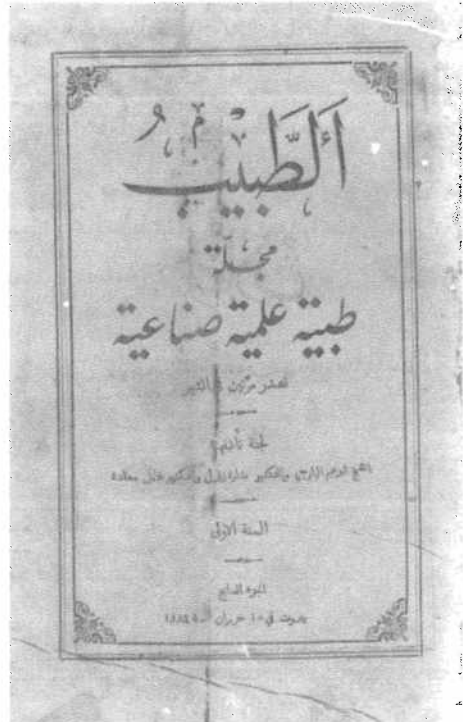 أَلطَّبِيْبُ
مجلّة
طبية علمية صناعية
تصدر مرتين في الشهر
لجنة تأليفها
الشيخ ابرهيم اليازجي والدكتور بشارة زلزل والدكتور خليل سعادة
السنة الاولى
الجزء السابع
بيروت في ١٥ حزيران سنة ١٨٨٤